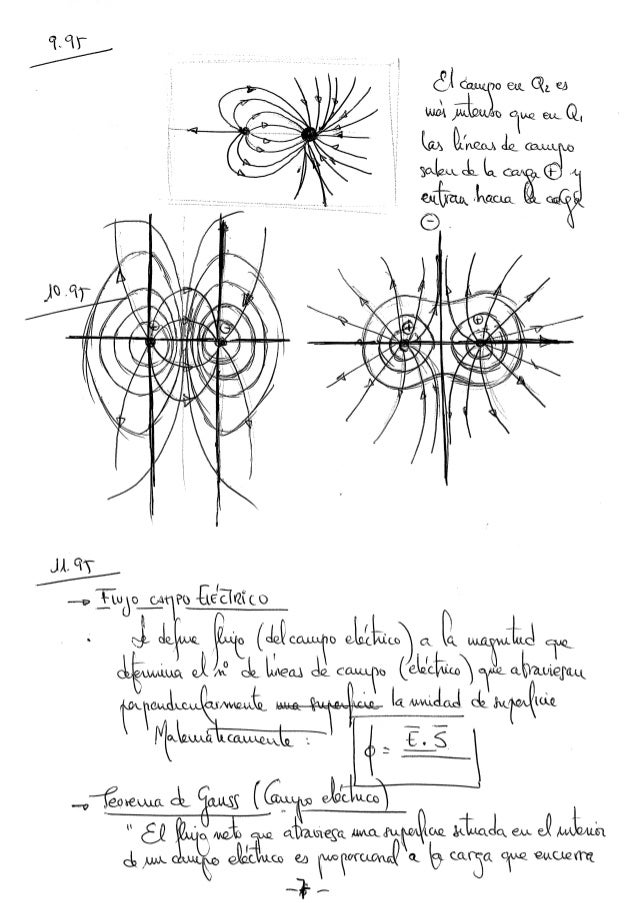 9.95
El campo en Q₂ es
más intenso que en Q₁
Las líneas de campo
salen de la carga ⊕ y
entran hacia la carga
⊖
10.95
+
-
+
+
11.95
→ FLUJO CAMPO ELÉCTRICO
Se define flujo (del campo eléctrico) a la magnitud que
determina el nº de líneas de campo (eléctrico) que atraviesan
perpendicularmente una superficie la unidad de superficie
Matemáticamente : ϕ = E̅ . S̅
→ Teorema de Gauss (Campo eléctrico)
" El flujo neto que atraviesa una superficie situada en el interior
de un campo eléctrico es proporcional a la carga que encierra
- 7 -